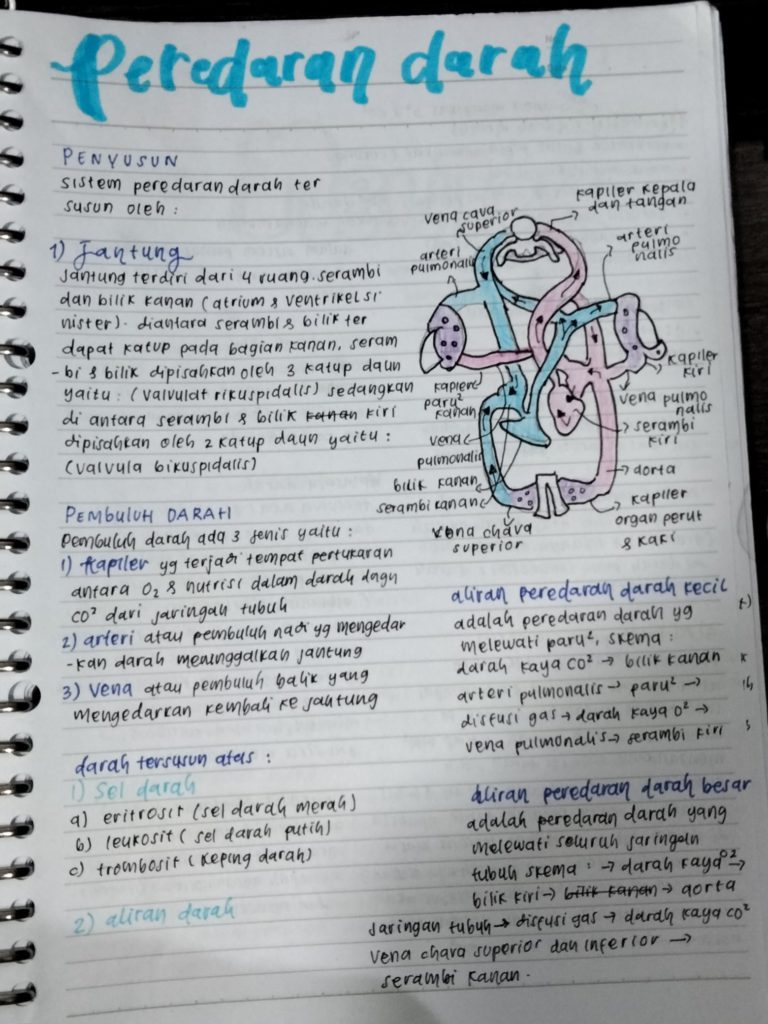 Peredaran darah
PENYUSUN
sistem peredaran darah ter
susun oleh :
1) Jantung
Jantung terdiri dari 4 ruang. serambi
dan bilik kanan (atrium & ventrikel si
nister). diantara serambi & bilik ter
dapat katup pada bagian kanan, seram
-bi & bilik dipisahkan oleh 3 katup daun
yaitu : (valvulat rikuspidalis) sedangkan
di antara serambi & bilik kanan kiri
dipisahkan oleh 2 katup daun yaitu :
(valvula bikuspidalis)
vena cava
superior
kapiler kepala
dan tangan
arteri
pulmonalis
arteri
pulmo
nalis
kapiler
paru²
kanan
kapiler
kiri
vena pulmo
nalis
vena
pulmonalis
serambi
kiri
bilik kanan
aorta
serambi kanan
vena chava
superior
kapiler
organ perut
& kaki
PEMBULUH DARAH
Pembuluh darah ada 3 jenis yaitu :
1) kapiler yg terjadi tempat pertukaran
antara O2 & nutrisi dalam darah dngn
CO² dari jaringan tubuh
2) arteri atau pembuluh nadi yg mengedar
-kan darah meninggalkan jantung
3) Vena atau pembuluh balik yang
mengedarkan kembali ke jantung
darah tersusun atas :
1) Sel darah
a) eritrosit (sel darah merah)
b) leukosit ( sel darah putih)
c) trombosit (keping darah)
2) aliran darah
aliran peredaran darah kecil
adalah peredaran darah yg
melewati paru², skema :
darah kaya CO² → bilik kanan
arteri pulmonalis → paru² →
difusi gas → darah kaya O² →
vena pulmonalis → serambi kiri
aliran peredaran darah besar
adalah peredaran darah yang
melewati seluruh jaringan
tubuh skema : → darah kaya O2 →
bilik kiri → bilik kanan → aorta
jaringan tubuh → difusi gas → darah kaya CO²
vena chava superior dan inferior →
serambi kanan.